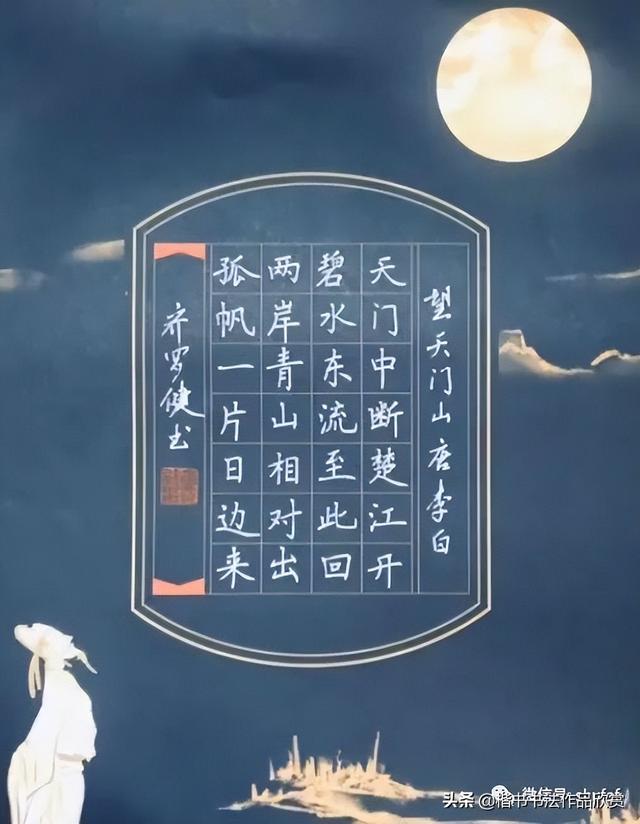 望天门山 唐 李白
天门中断楚江开
碧水东流至此回
两岸青山相对出
孤帆一片日边来
齐罗健书
头条@楷书书法作品欣赏